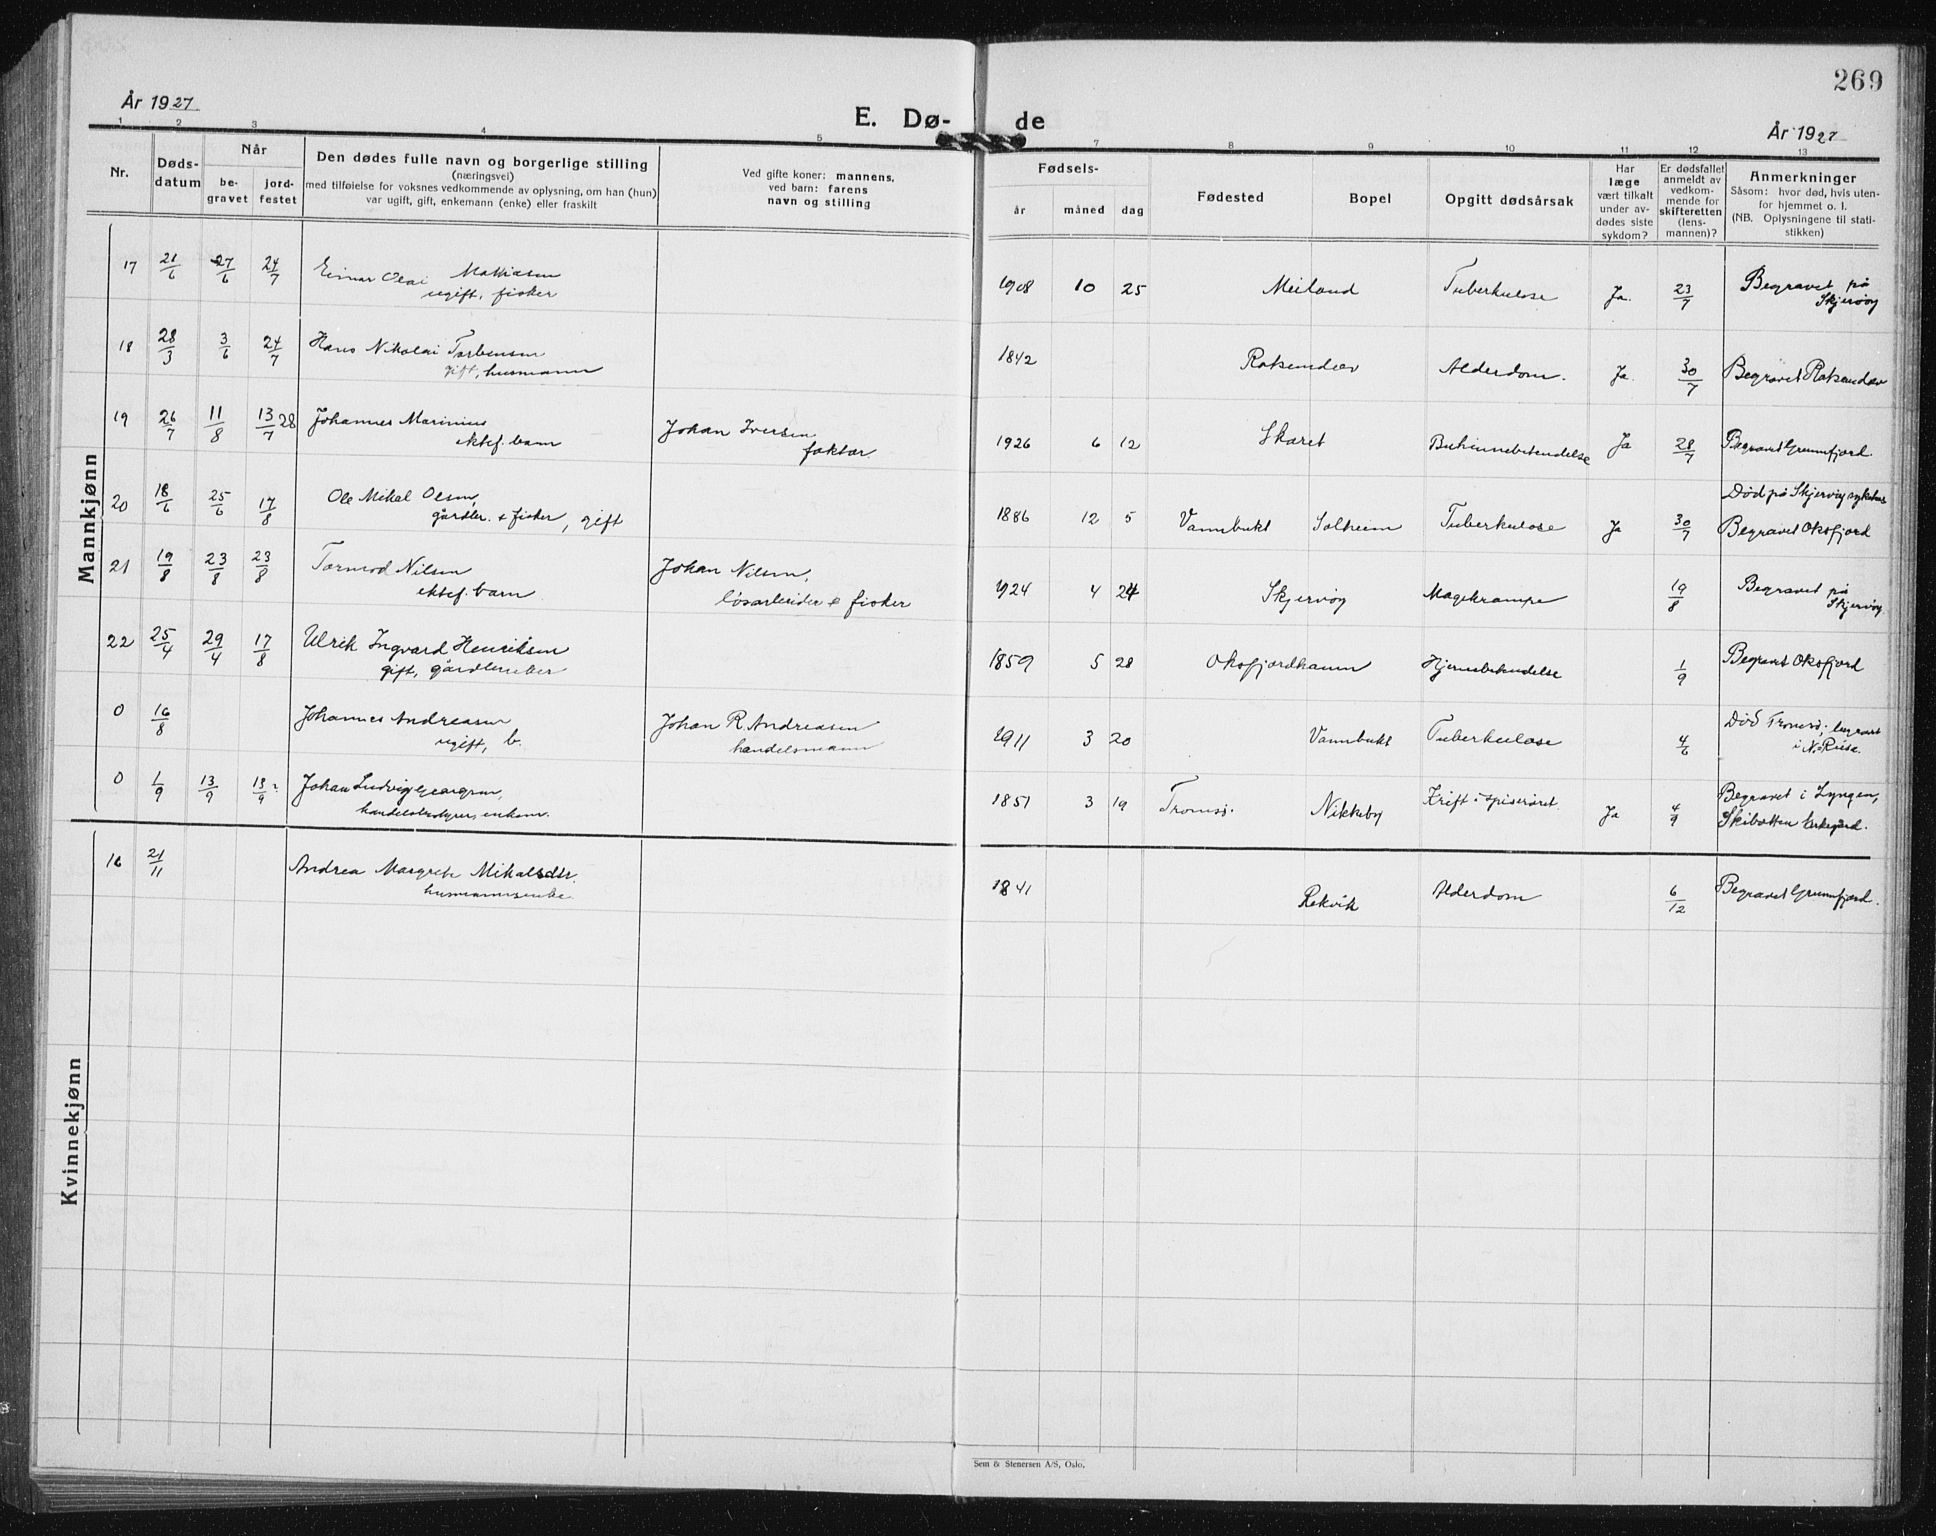 269
År 1927
E. Dø-
de
År 1927
1 2 3 4 5 7 8 9 10 11 12 13
Nr.
Døds-
datum
Når
be-
gravet
jord-
festet
Den dødes fulle navn og borgerlige stilling
(næringsvei)
med tilføielse for voksnes vedkommende av oplysning, om han (hun)
var ugift, gift, enkemann (enke) eller fraskilt
Ved gifte koner: mannens,
ved barn: farens
navn og stilling
Fødsels-
år måned dag
Fødested
Bopel
Opgitt dødsårsak
Har
læge
vært tilkalt
under av-
dødes siste
sykdom?
Er dødsfallet
anmeldt av
vedkom-
mende for
skifteretten
(lens-
mannen)?
Anmerkninger
Såsom: hvor død, hvis uten-
for hjemmet o. l.
(NB. Oplysningene til stati-
stikken)
Mannkjønn
17 21/6 27/6 24/7 Einar Olai Mathiasen 1908 10 25 Meiland Tuberkulose Ja. 23/7 Begravet på
ugift, fisker Skjervøy
18 28/3 3/6 24/7 Hans Nikolai Torbensen 1842 Rotsundelv Alderdom. Ja. 30/7 Begravet Rotsundelv
gift, husmann
19 26/7 11/8 13/7 28 Johannes Marinius Johan Iversen 1926 6 12 Skaret Buhinnebetendelse Ja 28/7 Begravet Grunnfjord
ektef. barn faktor.
20 18/6 25/6 17/8 Ole Mikal Olsen, 1886 12 5 Vannbukt Solheim Tuberkulose Ja 30/7 Død på Skjervøy sykehus
gårdbr. & fisker, gift Begravet Oksfjord
21 19/8 23/8 23/8 Tormod Nilsen Johan Nilsen, 1924 4 24 Skjervøy Magekrampe 19/8 Begravet på
ektef. barn løsarbeider & fisker Skjervøy
22 25/4 29/4 17/8 Ulrik Ingvard Henriksen 1859 5 28 Oksfjordhamn Hjernebetendelse 1/9 Begravet Oksfjord
gift, gårdbruker
0 16/8 Johannes Andreasen Johan R. Andreasen 1911 3 20 Vannbukt Tuberkulose 4/6 Død Tromsø, begravet
ugift, b. handelsmann i N. Reisa.
0 1/9 13/9 13/9 Johan Ludvig Georgsen, 1851 3 19 Tromsø. Nikkeby Kreft i spiserøret. Ja 4/9 Begravet i Lyngen,
handelsbestyrer, enkem. Skibotten kirkegård.
Kvinnekjønn
16 21/11 Andrea Margrete Mikalsdtr. 1841 Rekvik Alderdom 6/12 Begravet Grunnfjord.
husmannsenke
Sem & Stenersen A/S, Oslo.